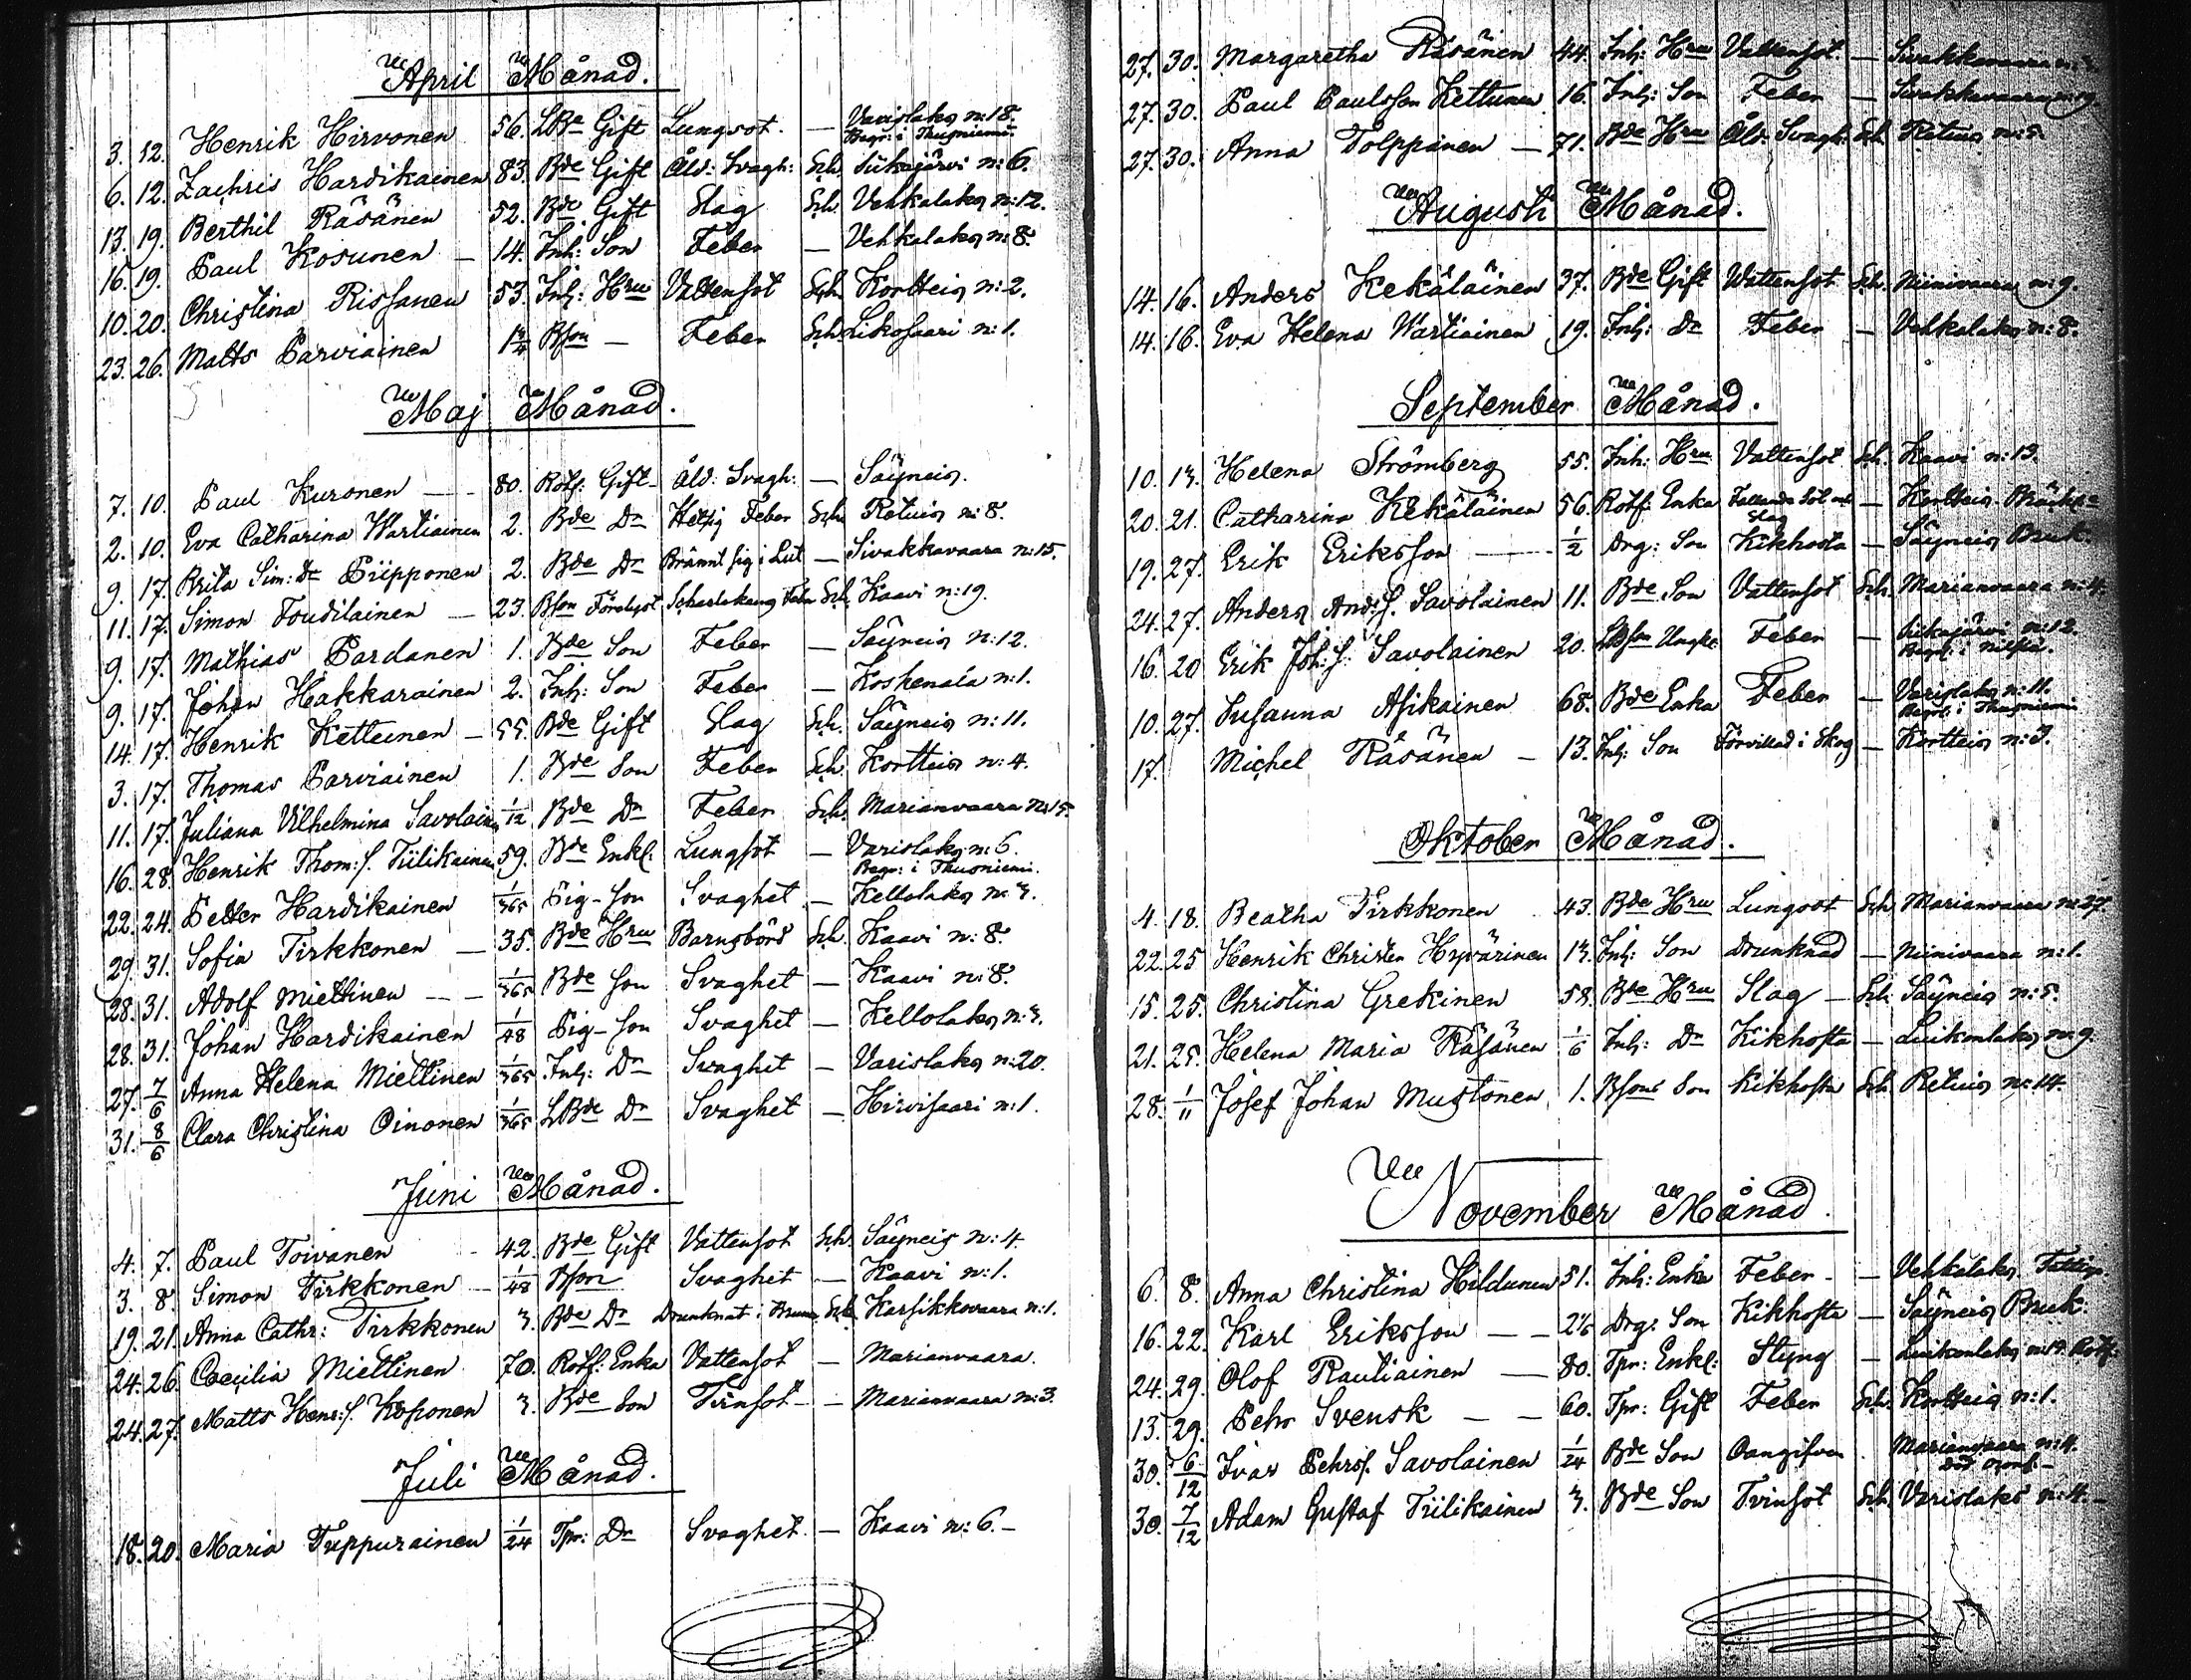 April Månad.
3. 12. Henrik Hirvonen 56. LBde Gift Lungsot. — Varislaks n: 18.
Begr: i Thusniemi.
6. 12. Zachris Hardikainen 83. Bde Gift Åld: Svagh: Sch. Siikajärvi n: 6.
13. 19. Berthil Räsänen 52. Bde Gift Slag Sch. Vehkalaks n: 12.
16. 19. Paul Kosunen — 14. Inh: Son Feber — Vehkalaks n: 8.
10. 20. Christina Rissanen 53. Inh: Hru Vattensot Sch. Kortteis n: 2.
23. 26. Matts Parviainen 1¾ Bson — Feber Sch. Likosaari n: 1.
Maj Månad.
7. 10. Paul Kuronen — 80. Rotf. Gift - Åld: Svagh: — Säyneis.
2. 10. Eva Catharina Wartiainen 2. Bde Dr Hetsig Feber Sch. Retuis n: 8.
9. 17. Brita Sim: Dr Piipponen 2. Bde Dr Brännt sig i Lut — Sivakkavaara n: 15.
11. 17. Simon Toudilainen — 23. Bson Sch. Kaavi n: 19.
9. 17. Mathias Pardanen 1. Bde Son Feber — Säyneis n: 12.
9. 17. Johan Hakkarainen 2. Inh: Son Feber — Koskenala n: 1.
14. 17. Henrik Kettunen — 55. Bde Gift Slag Sch. Säyneis n: 11.
3. 17. Thomas Parviainen 1. Bde Son Feber Sch. Kortteis n: 4.
11. 17. Juliana Vilhelmina Savolain 1/12 Bde Dr Feber Sch. Marianvaara n: 15.
16. 28. Henrik Thom: s. Tiilikainen 59. Bde Enkl. Lungsot — Varislaks n: 6.
Begr: i Thusniemi.
22. 24. Petter Hardikainen 1/365 Pig - son Svaghet — Kellolaks n: 3.
29. 31. Sofia Tirkkonen — 35. Bde Hru Barnsbörd Sch. Kaavi n: 8.
28. 31. Adolf Miettinen — 1/365 Bde son Svaghet — Kaavi n: 8.
28. 31. Johan Hardikainen 1/48 Pig - son Svaghet — Kellolaks n: 3.
27. 7/6 Anna Helena Miettinen 1/365 Inh: Dr Svaghet — Varislaks n: 20.
31. 8/6 Clara Christina Oinonen 1/365 LBde Dr Svaghet — Hirvisaari n: 1.
Juni Månad.
4. 7. Paul Toivanen - 42. Bde Gift Vattensot Sch. Säyneis n: 4.
3. 8. Simon Tirkkonen — 1/48 Bson Svaghet — Kaavi n: 1.
19. 21. Anna Cathr: Tirkkonen 3. Bde Dr Drunknat i Brunn Sch. Karsikkovaara n: 1.
24. 26. Caecilia Miettinen 70. Rotf. Enka Vattensot — Marianvaara.
24. 27. Matts Henr: s. Koponen 3. Bde Son — Marianvaara n: 3.
Juli Månad.
18. 20. Maria Tuppurainen 1/24 Tpr: Dr Svaghet. — Kaavi n: 6. —
27. 30. Margaretha Räsänen 44. Inh: Hru Vattensot. — Sivakkavaara
27. 30. Paul Paulsson Kettunen 16. Inh: Son Feber — Sivakkavaara n: 19.
27. 30. Anna Tolppanen — 71. Bde Hru Åld: Svagh: Sch. Retuis n: 5.
Augusti Månad.
14. 16. Anders Kekäläinen 37. Bde Gift Wattensot Sch. Niinivaara n: 9.
14. 16. Eva Helena Wartiainen 19. Inh: Dr Feber — Vehkalaks n: 8.
September Månad.
10. 13. Helena Strömberg 55. Inh: Hru Vattensot Sch. Kaavi n: 13.
20. 21. Catharina Kekäläinen 56. Rotf. Enka Fallande Sot och — Kortteis
Slag
19. 27. Erik Eriksson — 1/2 Drg: Son Kikhosta — Säyneis Bruk.
24. 27. Anders And: S. Savolainen 11. Bde Son Vattensot Sch. Marianvaara n: 4.
16. 20 Erik Joh: S: Savolainen 20. LBson Ungk: Feber — Siikajärvi n: 12.
Begr: i Nilsiä.
10. 27. Susanna Asikainen 68. Bde Enka Feber — Varislaks n: 11.
Begr: i Thusniemi
17. Michel Räsänen — 13. Inh: Son Förvillad i Skog — Kortteis n: 3.
Oktober Månad.
4. 18. Beatha Tirkkonen 43. Bde Hru Lungsot Sch. Marianvaara n: 27.
22. 25 Henrik Christer Hyvärinen 13. Inh: Son Drunknad — Niinivaara n: 1.
15. 25. Christina Grekinen 58. Bde Hru Slag — Sch. Säyneis n: 5.
21. 25. Helena Maria Räsänen 1/6 Inh: Dr Kikhosta — Luikonlaks n: 9.
28. 1/11 Josef Johan Mustonen 1. Bsons Son Kikhosta Sch. Retuis n: 14.
November Månad.
6. 8. Anna Christina Hildunen 51. Inh: Enka Feber - — Vehkalaks
16. 22. Karl Eriksson — — 2½ Drg: Son Kikhosta — Säyneis Bruk.
24. 29. Olof Rautiainen — 80. Tpr: Enkl: Styng — Luikonlaks n: 19. Rotf.
13. 29. Pehr Svensk — — 60. Tpr: Gift Feber Sch. Kortteis n: 1.
30. 6/12 Ivar Pehrs. Savolainen 1/24 Bde Son Oangifven Marianvaara n: 4.
30. 7/12 Adam Gustaf Tiilikainen 3. Bde Son Tvinsot Sch. Varislaks n: 4. —